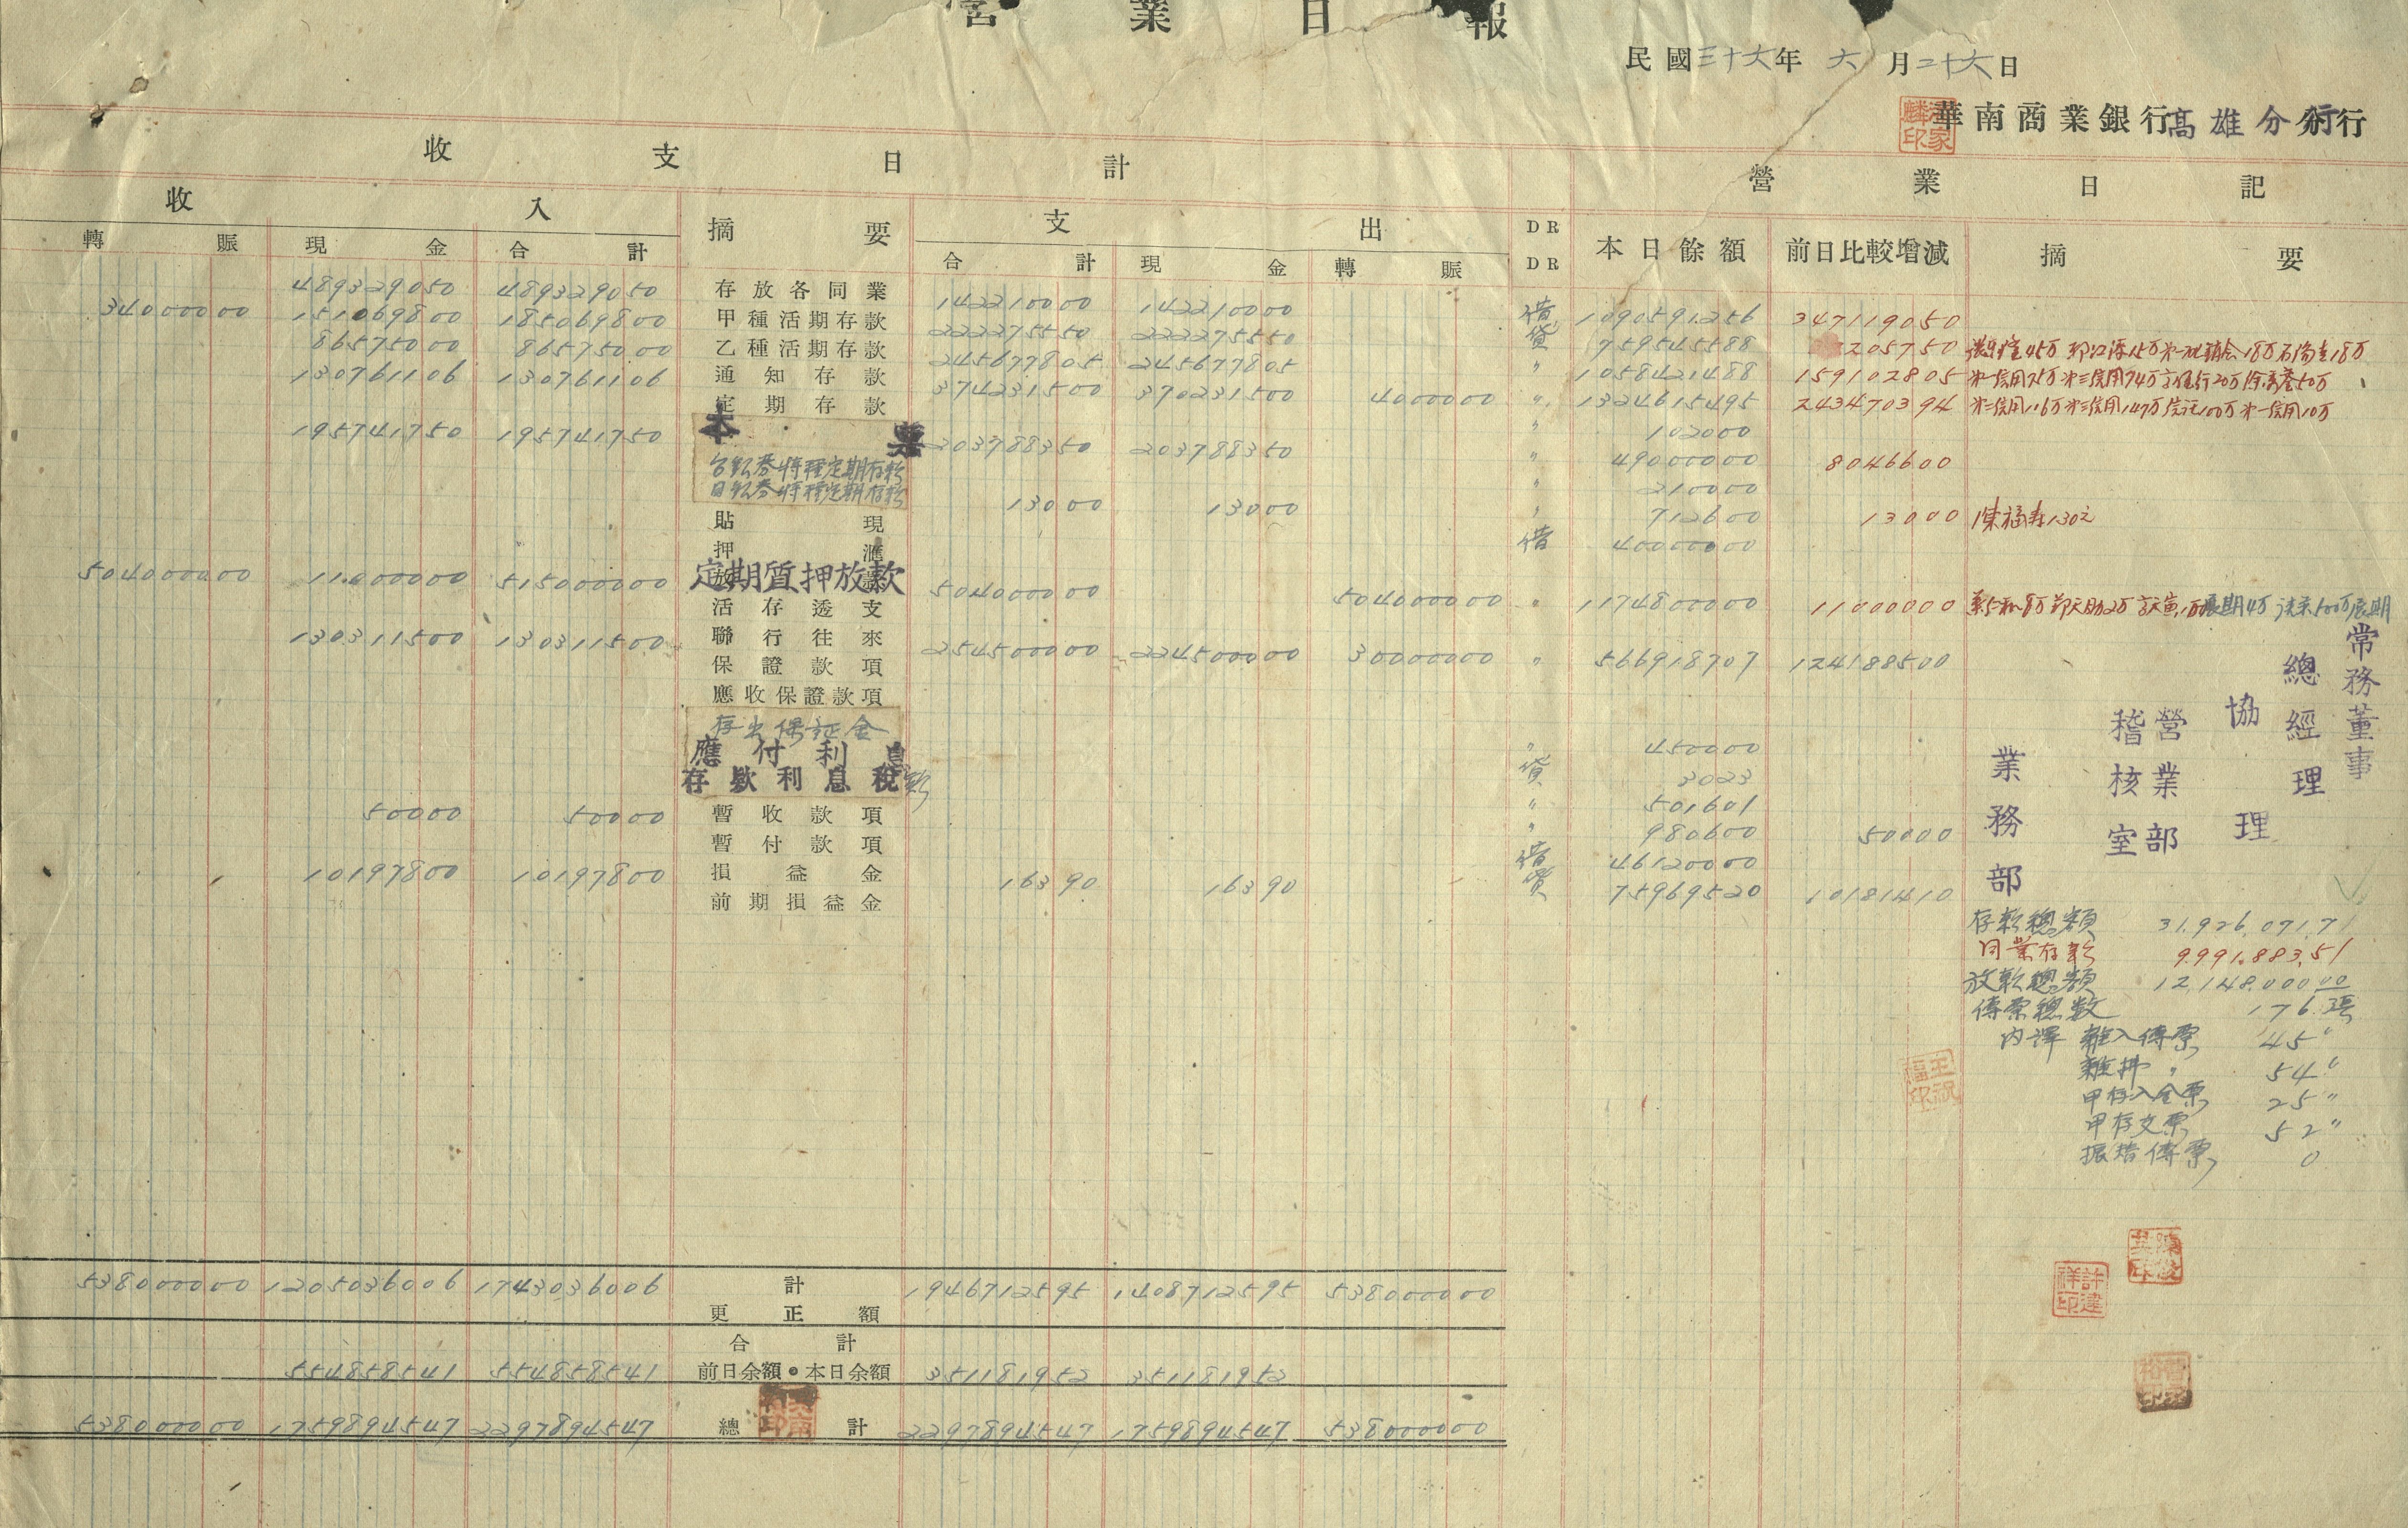 營業日報
民國三十六年 六月二十六日
華南商業銀行高雄分行
收支日計
營業日記
收入 摘要 支出 DR 本日餘額 前日比較增減 摘要
轉賬 現金 合計 合計 現金 轉賬 DR
489329050 489329050 存放各同業 142210000 142210000 借 1090591256 347119050
34000000 151069800 185069800 甲種活期存款 222275550 222275550 貸 759545588 205750
86575000 86575000 乙種活期存款 245677805 245677805 〃 1058421488 159102805
130761106 130761106 通知存款 374231500 370231500 4000000 〃 1324615495 243470394
定期存款 〃 102000
195741750 195741750 本票 203788350 203788350 〃 49000000 8046600
台鈔券特種定期存款 〃 210000
日鈔券特種定期存款 13000 13000 〃 712600 13000 陳福寿130元
貼現 借 40000000
押滙
504000000 11000000 515000000 定期質押放款 504000000 504000000 〃 1174800000 11000000
活存透支
130311500 130311500 聯行往來 254500000 224500000 30000000 〃 566918707 124188500
保證款項
應收保證款項
存出保証金 〃 450000
應付利息 貸 3023
存款利息稅款 〃 501601
50000 50000 暫收款項 〃 980600 50000
暫付款項 借 46120000
10197800 10197800 損益金 16390 16390 貸 75969520 10181410
前期損益金
常務董事
總經理
協理
營業部
稽核室
業務部
存款總額 31,926,071.71
同業存款 9,991,883.51
放款總額 12,148,000.00
傳票總数 176張
內譯 雜入傳票 45〃
雜拂〃 54〃
甲存入金票 25〃
甲存支票 52〃
振替傳票 0
538000000 1205036006 1743036006 計 1946712595 1408712595 538000000
更正額
合計
554858541 554858541 前日余額・本日余額 351181952 351181952
538000000 1759894547 2297894547 總計 2297894547 1759894547 538000000
許建祥印